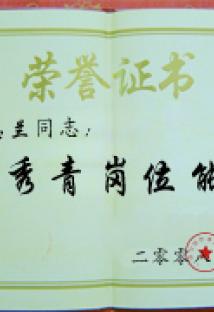 荣誉证书
兰同志：
秀青岗位能
二零零八